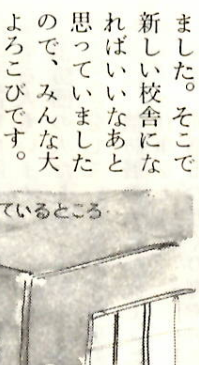 ました。そこで
新しい校舎にな
ればいいなあと
思っていました
ので、みんな大
よろこびです。
ているところ